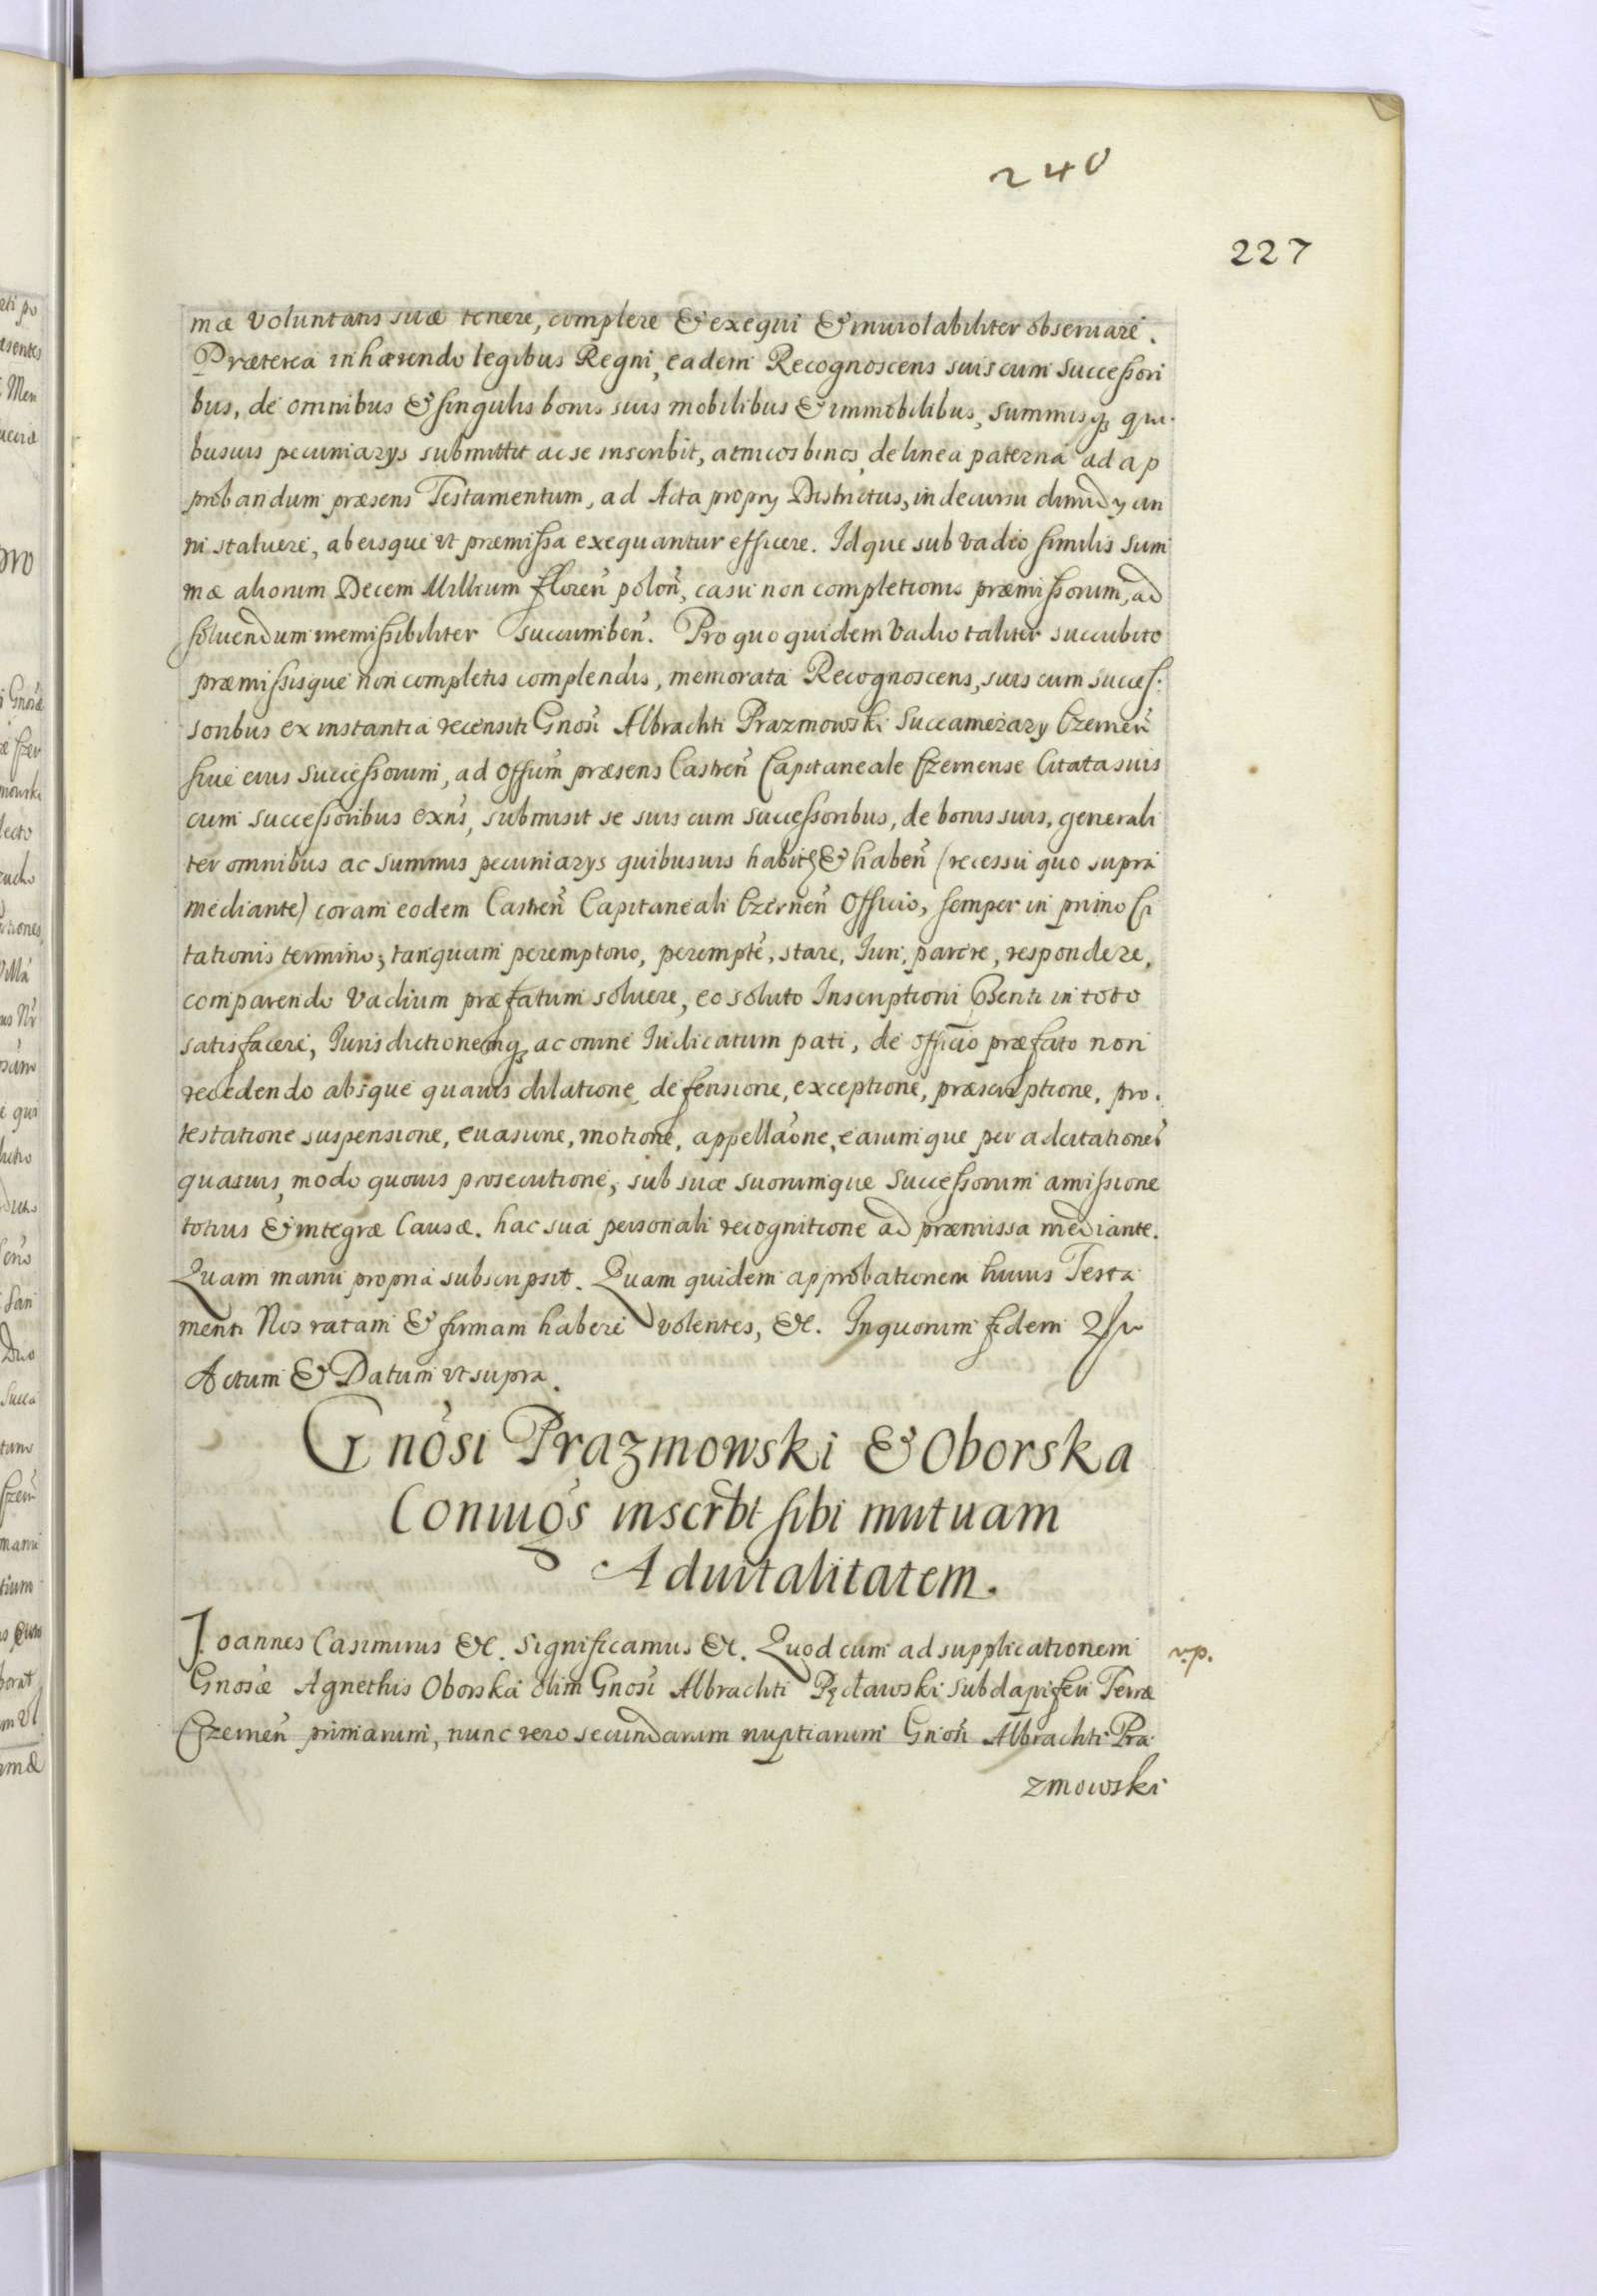 240
227
mæ voluntatis suæ tenere, complere & exequi & inuiolabiliter obseruare.
Præterea inhærendo legibus Regni, eadem Recognoscens suis cum Successori
bus, de omnibus & singulis bonis suis mobilibus & immobilibus, summisq3 qui
busuis pecuniarys submittit ac se inscribit, amicos binos de linea paterna ad ap
probandum præsens Testamentum, ad Acta propry Districtus, in decursu dimidy an
ni statuere, ab eisque vt præmissa exequantur efficere. Idque sub vadio similis sum
mæ aliorum Decem Millium floreñ poloñ, casu non completionis præmissorum, ad
soluendum irremissibiliter succumbeñ. Pro quo quidem vadio taliter succubito
præmissisque non completis complendis, memorata Recognoscens, suis cum succes:
soribus ex instantia recensiti Gnosi Albrachti Prazmowski Succamerary Czerneñ
siue eius Successorum, ad Offum præsens Castreñ Capitaneale Czernense Citata suis
cum successoribus exñs, submisit se suis cum successoribus, de bonis suis, generali
ter omnibus ac summis pecuniarys quibusuis habit & habeñ (recessu quo supra
mediante) coram eodem Castreñ Capitaneali Czerneñ Officio, semper in primo Ci
tationis termino, tanquam peremptorio, perempte, stare, Iuri, parere, respondere,
comparendo Vadium præfatum soluere, eo soluto Inscriptioni Psenti in toto
satisfacere, Iurisdictionemq3 ac omne Iudicatum pati, de officio præfato non
recedendo absque quauis dilatione, defensione, exceptione, præscriptione, pro.
testatione suspensione, euasione, motione, appellaone, earumque per adcitationes
quasuis, modo quouis prosecutione, sub suæ suorumque Successorum amissione
totius & integræ Causæ. hac sua personali recognitione ad præmissa mediante.
Quam manu propria subscripsit. Quam quidem approbationem huius Testa
menti Nos ratam & firmam habere volentes, &c. In quorum fidem
Actum & Datum vt supra.
Gnosi Prazmowski & Oborska
Coniugs inscrbt sibi mutuam
Aduitalitatem.
Ioannes Casimirus &c. Significamus &c. Quod cum ad supplicationem
r.p.
Gnosæ Agnethis Oborska olim Gnosi Albrachti Pęcławski subdapiferi Terræ
Czerneñ primarum, nunc vero secundarum nuptiarum Gnosi Albrachti Pra
zmowski